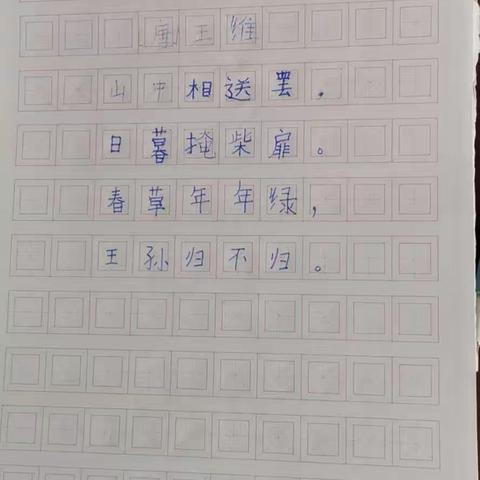 唐王维
山中相送罢，
日暮掩柴扉。
春草年年绿，
王孙归不归。